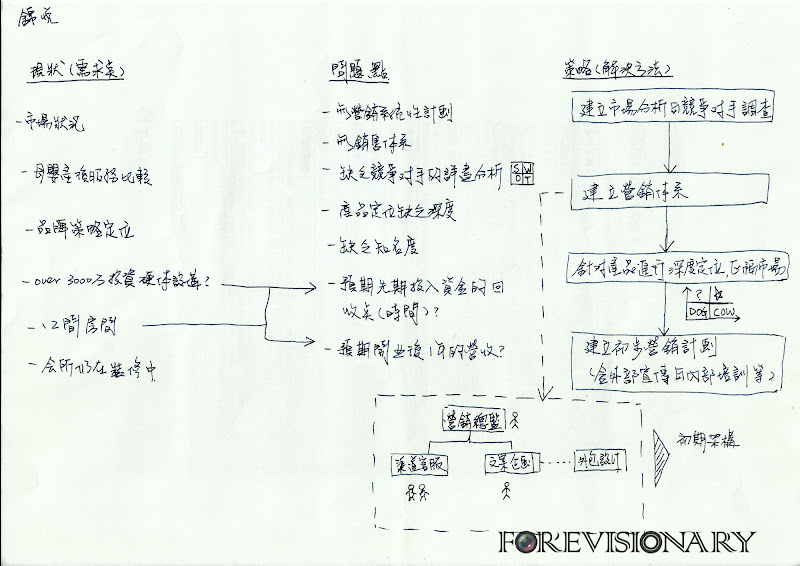 錦悅
現狀(需求矣)
-市場狀況
-母嬰產後服務比較
-品牌策略定位
-over 3000万投資硬体設備?
-12間房間
-会所仍在裝修中
問題點
-無營銷系統性計劃
-無銷售体系
-缺乏競爭对手的詳盡分析 S W O T
-產品定位缺乏深度
-缺乏知名度
-預期先期投入資金的回
收矣(時間)?
-預期開业後1年的營收?
策略(解決方法)
建立市場分析與競爭对手調查
建立营銷体系
針对產品進行深度定位
? ☆
DOG COW
建立初步營銷計劃
(含外部宣傳與內部培訓等)
营銷總監
渠道客服
文案企劃
外包設計
初期架構
FOREVISIONARY